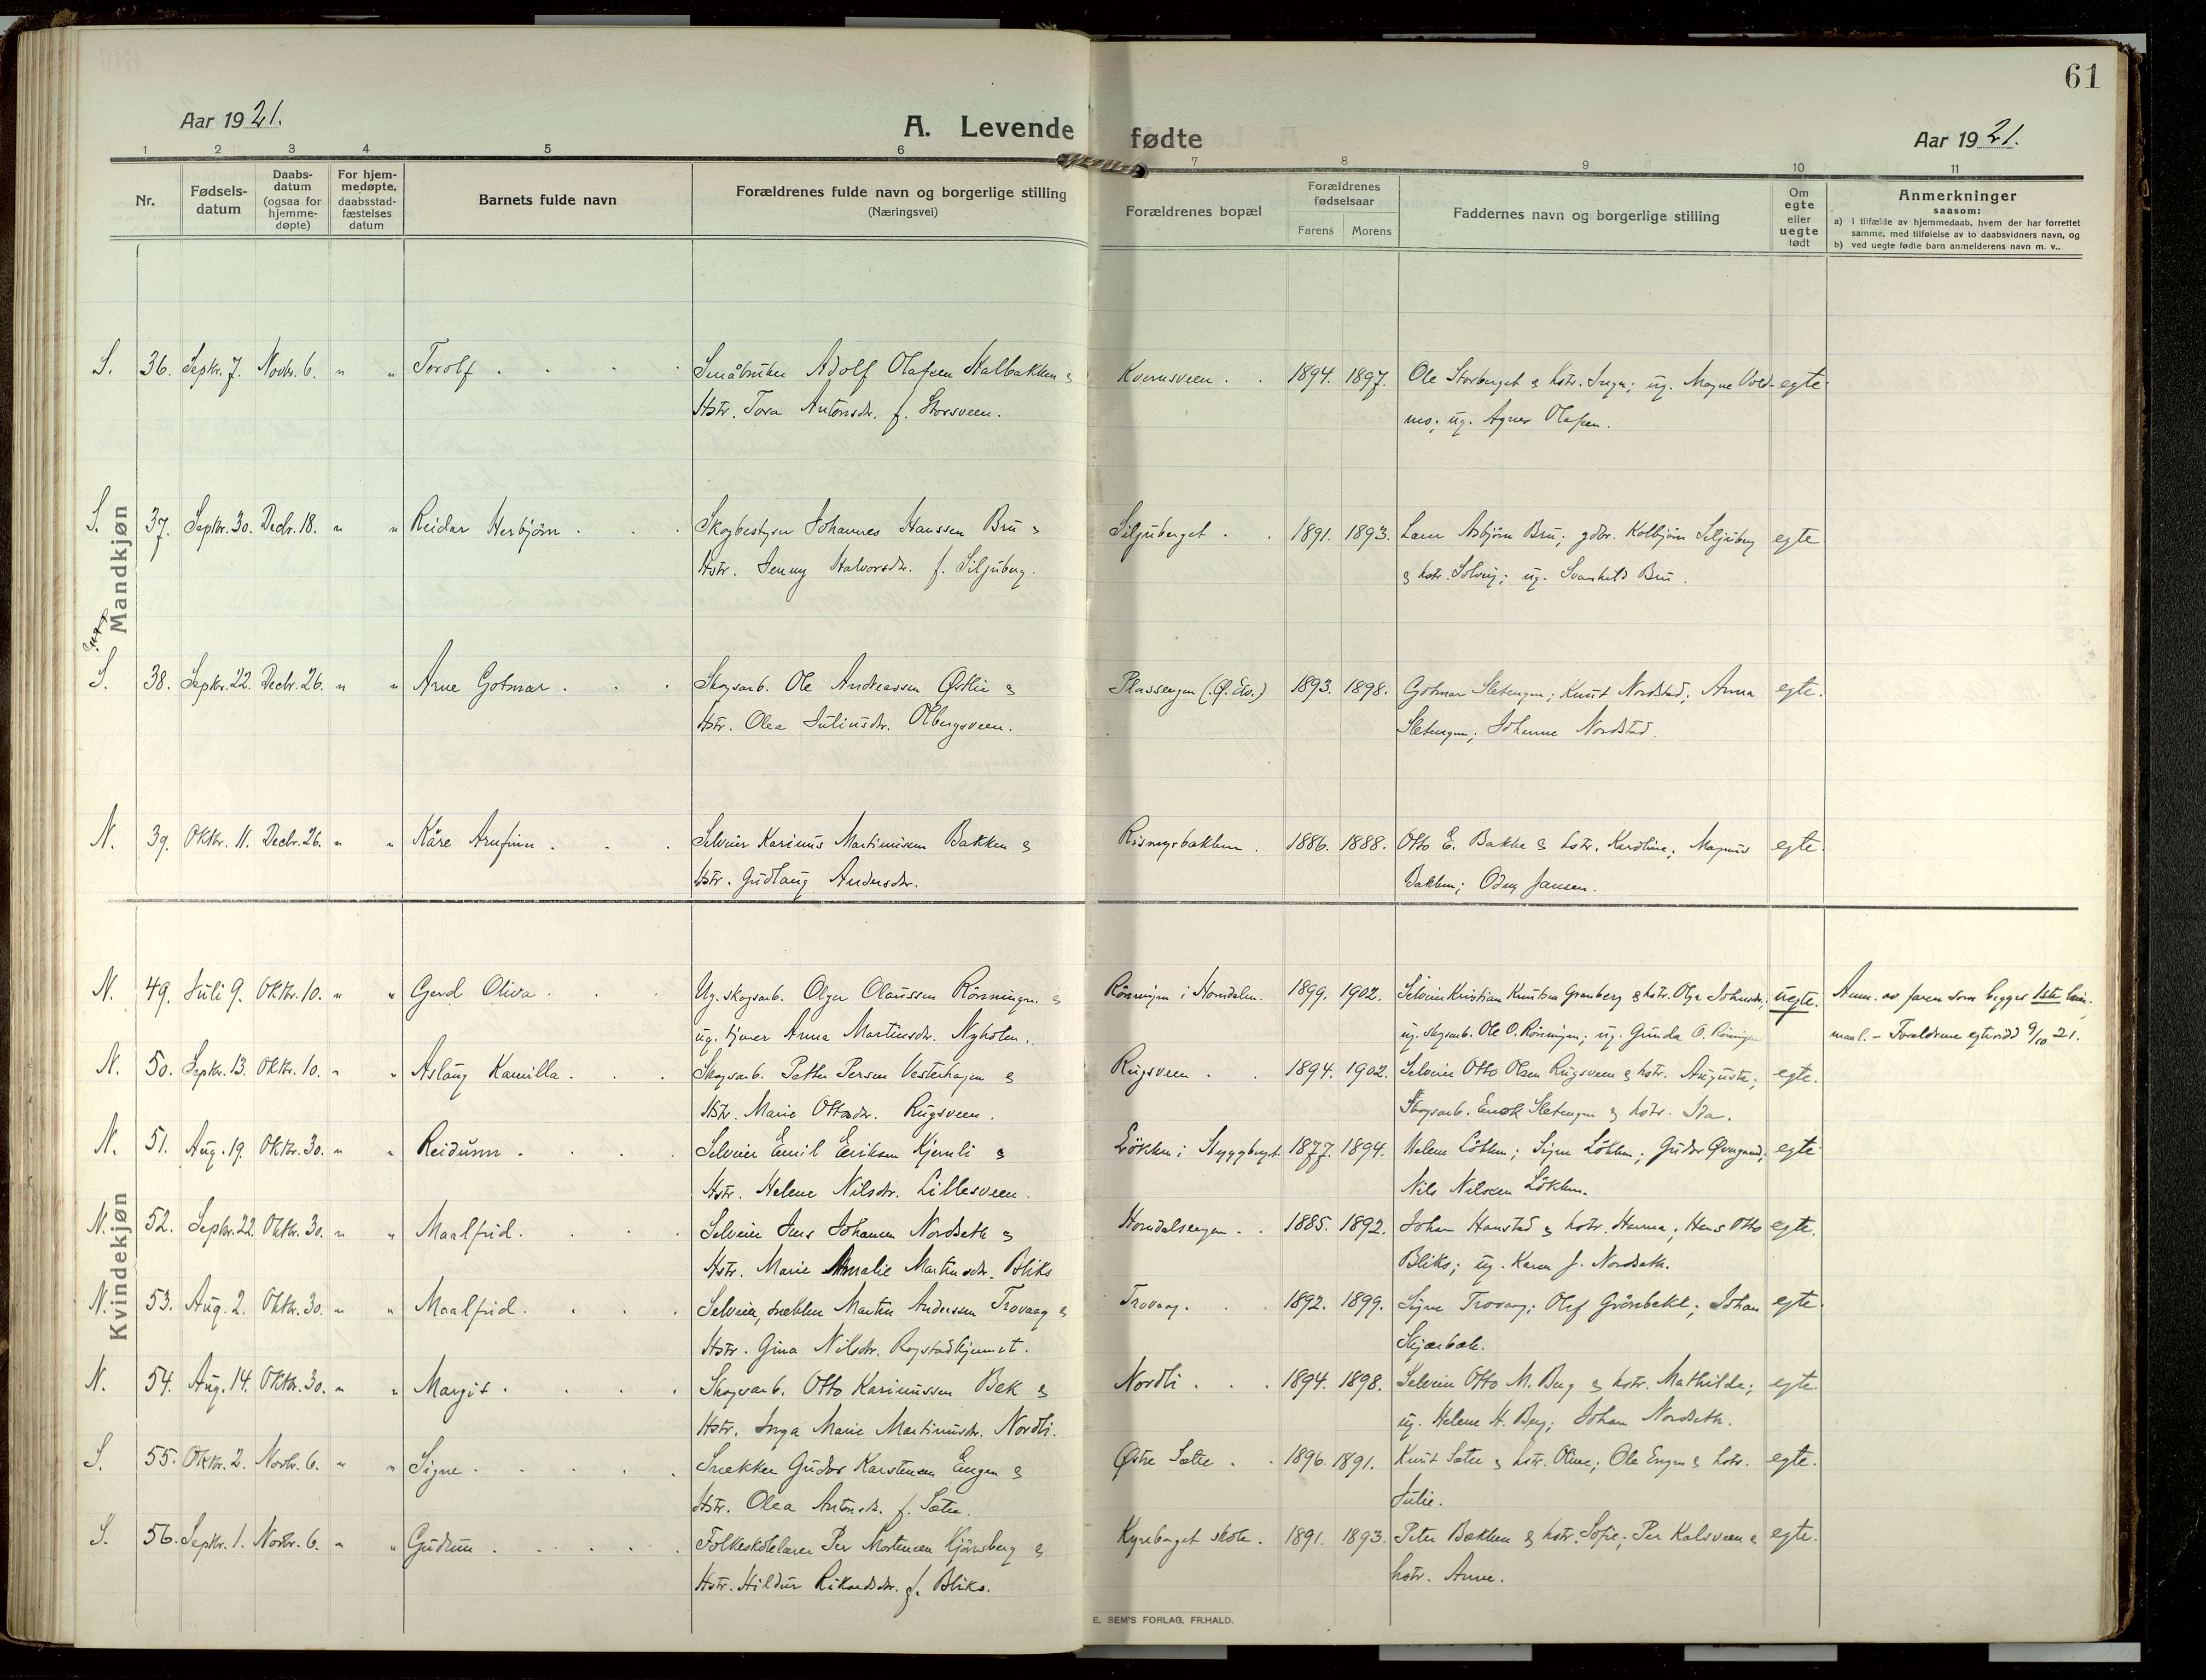 61
Aar 1921.
A. Levende fødte
Aar 1921.
1 2 3 4 5 6 7 8 9 10 11
Nr.
Fødsels-
datum
Daabs-
datum
(ogsaa for
hjemme-
døpte)
For hjem-
medøpte,
daabsstad-
fæstelses
datum
Barnets fulde navn
Forældrenes fulde navn og borgerlige stilling
(Næringsvei)
Forældrenes bopæl
Forældrenes
fødselsaar
Farens Morens
Faddernes navn og borgerlige stilling
Om
egte
eller
uegte
født
Anmerkninger
saasom:
a) i tilfælde av hjemmedaab, hvem der har forrettet
samme, med tilføielse av to daabsvidners navn, og
b) ved uegte fødte barn anmelderens navn m. v..
Mandkjøn
S. 36. Septbr. 7. Novbr. 6. " " Torolf . Småbruker Adolf Olafsen Kalbakken & Kvernsveen . 1894. 1897. Ole Storberget & hstr. Inga; ug. Magne Vold- egte.
Hstr. Tora Antonsdr. f. Storsveen. mo; ug. Agnes Olafsen.
S. 37. Septbr. 30. Decbr. 18. " " Reidar Herbjörn . Skogbestyrer Johannes Hanssen Bru & Siljuberget . 1891. 1893. Lærer Asbjörn Bru; gdbr. Kolbjörn Siljuberg egte
Hstr. Jenny Halvorsdr. f. Siljuberg. & hstr. Solveig; ug. Svanhild Bru.
S. 38. Septbr. 22. Decbr. 26. " " Arne Gotmar . Skogsarb. Ole Andreassen Østlie & Plassengen (Ø. Elv.) 1893. 1898. Gotmar Sletengen; Knut Nordstad; Anna egte.
Hstr. Olea Juliusdr. Olbergsveen. Sletengen; Johanne Nordstad.
N. 39. Oktbr. 11. Decbr. 26. " " Kåre Arnfinn . Selveier Karinus Martinusen Bakken & Rismyrbakken . 1886. 1888. Otto E. Bakke & hstr. Karoline; Magnus egte.
Hstr. Gudlaug Andersdr. Bakken; Odny Jansen.
Kvindekjøn
N. 49. Juli 9. Oktbr. 10. " " Gerd Oliva . Ug. skogsarb. Olger Olaussen Rönningen & Rönningen i Horndalen. 1899. 1902. Selveier Kristian Knutsen Granberg & hstr. Olga Johnsdr.; uegte. Anm. av faren som begges 1ste leier-
ug. tjener Anna Martinsdr. Nyholm. ug. skogsarb. Ole O. Rönningen; ug. Gunda O. Rönningen maal. - Forældrene egteviedd 9/10 21.
N. 50. Septbr. 13. Oktbr. 10. " " Aslaug Kamilla . Skogsarb. Petter Persen Vesterhagen & Rugsveen . 1894. 1902. Selveier Otto Olsen Rugsveen & hstr. Auguste; egte.
Hstr. Marie Ottosdr. Rugsveen. Skogsarb. Enok Sletengen & hstr. Ida.
N. 51. Aug. 19. Oktbr. 30. " " Reidunn . Selveier Emil Eriksen Kjernli & Lökken i Styggberget 1877. 1894. Helene Lökken; Signe Lökken; Gudor Øvergaard; egte
Hstr. Helene Nilsdr. Lillesveen. Nils Nilssen Lökken.
N. 52. Septbr. 22. Oktbr. 30. " " Maalfrid . Selveier Jens Johansen Nordseth & Horndalsengen . 1885. 1892. Johan Hanstad & hstr. Hanna; Hans Otto egte.
Hstr. Marie Amalie Martinsdr. Bliks Bliks; ug. Karen J. Nordseth.
N. 53. Aug. 2. Oktbr. 30. " " Maalfrid . Selveier, snekker Martin Andersen Trovaag & Trovaag . 1892. 1899. Signe Trovaag; Olef Grönbekk; Johan egte.
Hstr. Gina Nilsdr. Rogstadkjernet. Skjærbæk.
N. 54. Aug. 14. Oktbr. 30. " " Margit . Skogsarb. Otto Karinussen Bek & Nordli . 1894. 1898. Selveier Otto M. Berg & hstr. Mathilde; egte.
Hstr. Inga Marie Martinusdr. Nordli. ug. Helene H. Berg; Johan Nordseth.
S. 55. Oktbr. 2. Novbr. 6. " " Signe . Snekker Gudor Karstensen Engen & Østre Sætre . 1896. 1891. Knut Sætre & hstr. Oline; Ole Engen & hstr. egte.
Hstr. Olea Antonsdr. f. Sætre. Julie.
S. 56. Septbr. 1. Novbr. 6. " " Gudrun . Folkeskolelærer Per Mortensen Kjönsberg & Kyreberget skole . 1891. 1893. Peter Bækken & hstr. Sofie; Per Kalsveen & egte.
Hstr. Hildur Rikardsdr. f. Bliks. hstr. Anne.
E. SEM'S FORLAG, FR.HALD.